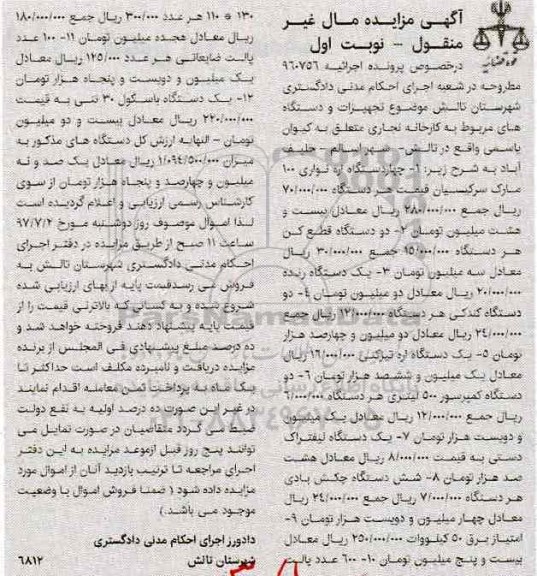 آگهی مزایده مال غیر
منقول - نوبت اول
درخصوص پرونده اجرائیه ۹۶۰۷۵۶
مطروحه در شعبه اجرای احکام مدنی دادگستری
شهرستان تالش موضوع تجهیزات و دستگاه
های مربوط به کارخانه نجاری متعلق به کیوان
یاسمی واقع در تالش- شهر اسالم - خلیف
آباد به شرح زیر: ۱- چهاردستگاه اره نواری ۱۰۰
مارک سرکیسیان قیمت هر دستگاه ۷۰/۰۰۰/۰۰۰
ریال جمع ۲۸۰/۰۰۰/۰۰۰ ریال معادل بیست و
هشت میلیون تومان ۲- دو دستگاه قطع کن
هر دستگاه ۱۵/۰۰۰/۰۰۰ جمع ۳۰/۰۰۰/۰۰۰ ریال
معادل سه میلیون تومان ۳- یک دستگاه رنده
۲۰/۰۰۰/۰۰۰ ریال معادل دو میلیون تومان ۴- دو
دستگاه کندکی هر دستگاه ۱۲/۰۰۰/۰۰۰ ریال جمع
۲۴/۰۰۰/۰۰۰ ریال معادل دو میلیون و چهارصد هزار
تومان ۵- یک دستگاه اره تیزکنی ۱۶/۰۰۰/۰۰۰ ریال
معادل یک میلیون و ششصد هزار تومان ۶- دو
دستگاه کمپرسور ۵۰۰ لیتری هر دستگاه ۶/۰۰۰/۰۰۰
ریال جمع ۱۲/۰۰۰/۰۰۰ ریال معادل یک میلیون
و دویست هزار تومان ۷- یک دستگاه لیفتراک
دستی به قیمت ۸/۰۰۰/۰۰۰ ریال معادل هشت
صد هزار تومان ۸- شش دستگاه چکش بادی
هر دستگاه ۷/۰۰۰/۰۰۰ ریال جمع ۲۴/۰۰۰/۰۰۰ ریال
معادل چهار میلیون و دویست هزار تومان ۹-
امتیاز برق ۵۰ کیلووات ۲۵۰/۰۰۰/۰۰۰ ریال معادل
بیست و پنج میلیون تومان ۱۰- ۶۰۰ عدد پالت
۱۳۰ * ۱۱۰ هر عدد ۳۰۰/۰۰۰ ریال جمع ۱۸۰/۰۰۰/۰۰۰
ریال معادل هجده میلیون تومان ۱۱- ۱۰۰ عدد
پالت ضایعاتی هر عدد ۱۲۵/۰۰۰ ریال معادل
یک میلیون و دویست و پنجاه هزار تومان
۱۲- یک دستگاه باسکول ۳۰ تنی به قیمت
۲۲۰/۰۰۰/۰۰۰ ریال معادل بیست و دو میلیون
تومان - النهایه ارزش کل دستگاه های مذکور به
میزان ۱/۰۹۴/۵۰۰/۰۰۰ ریال معادل یک صد و نه
میلیون و چهارصد و پنجاه هزار تومان از سوی
کارشناس رسمی ارزیابی و اعلام گردیده است
لذا اموال موصوف روز دوشنبه مورخ ۹۷/۷/۲
ساعت ۱۱ صبح از طریق مزایده در دفتر اجرای
احکام مدنی دادگستری شهرستان تالش به
فروش می رسدقیمت پایه از بهای ارزیابی شده
شروع شده و به کسانی که بالاترین قیمت را از
قیمت پایه پیشنهاد دهند فروخته خواهد شد و
ده درصد مبلغ پیشنهادی فی المجلس از برنده
مزایده دریافت و نامبرده مکلف است حداکثر تا
یک ماه به پرداخت ثمن معامله اقدام نمایند
در غیر این صورت ده درصد اولیه به نفع دولت
ضبط می گردد متقاضیان در صورت تمایل می
توانند پنج روز قبل ازموعد مزایده به این دفتر
اجرای مراجعه تا ترتیب بازدید آنان از اموال مورد
مزایده داده شود ( ضمنا فروش اموال با وضعیت
موجود می باشد.)
دادورز اجرای احکام مدنی دادگستری
شهرستان تالش
۶۸۱۲
ParsNamadData